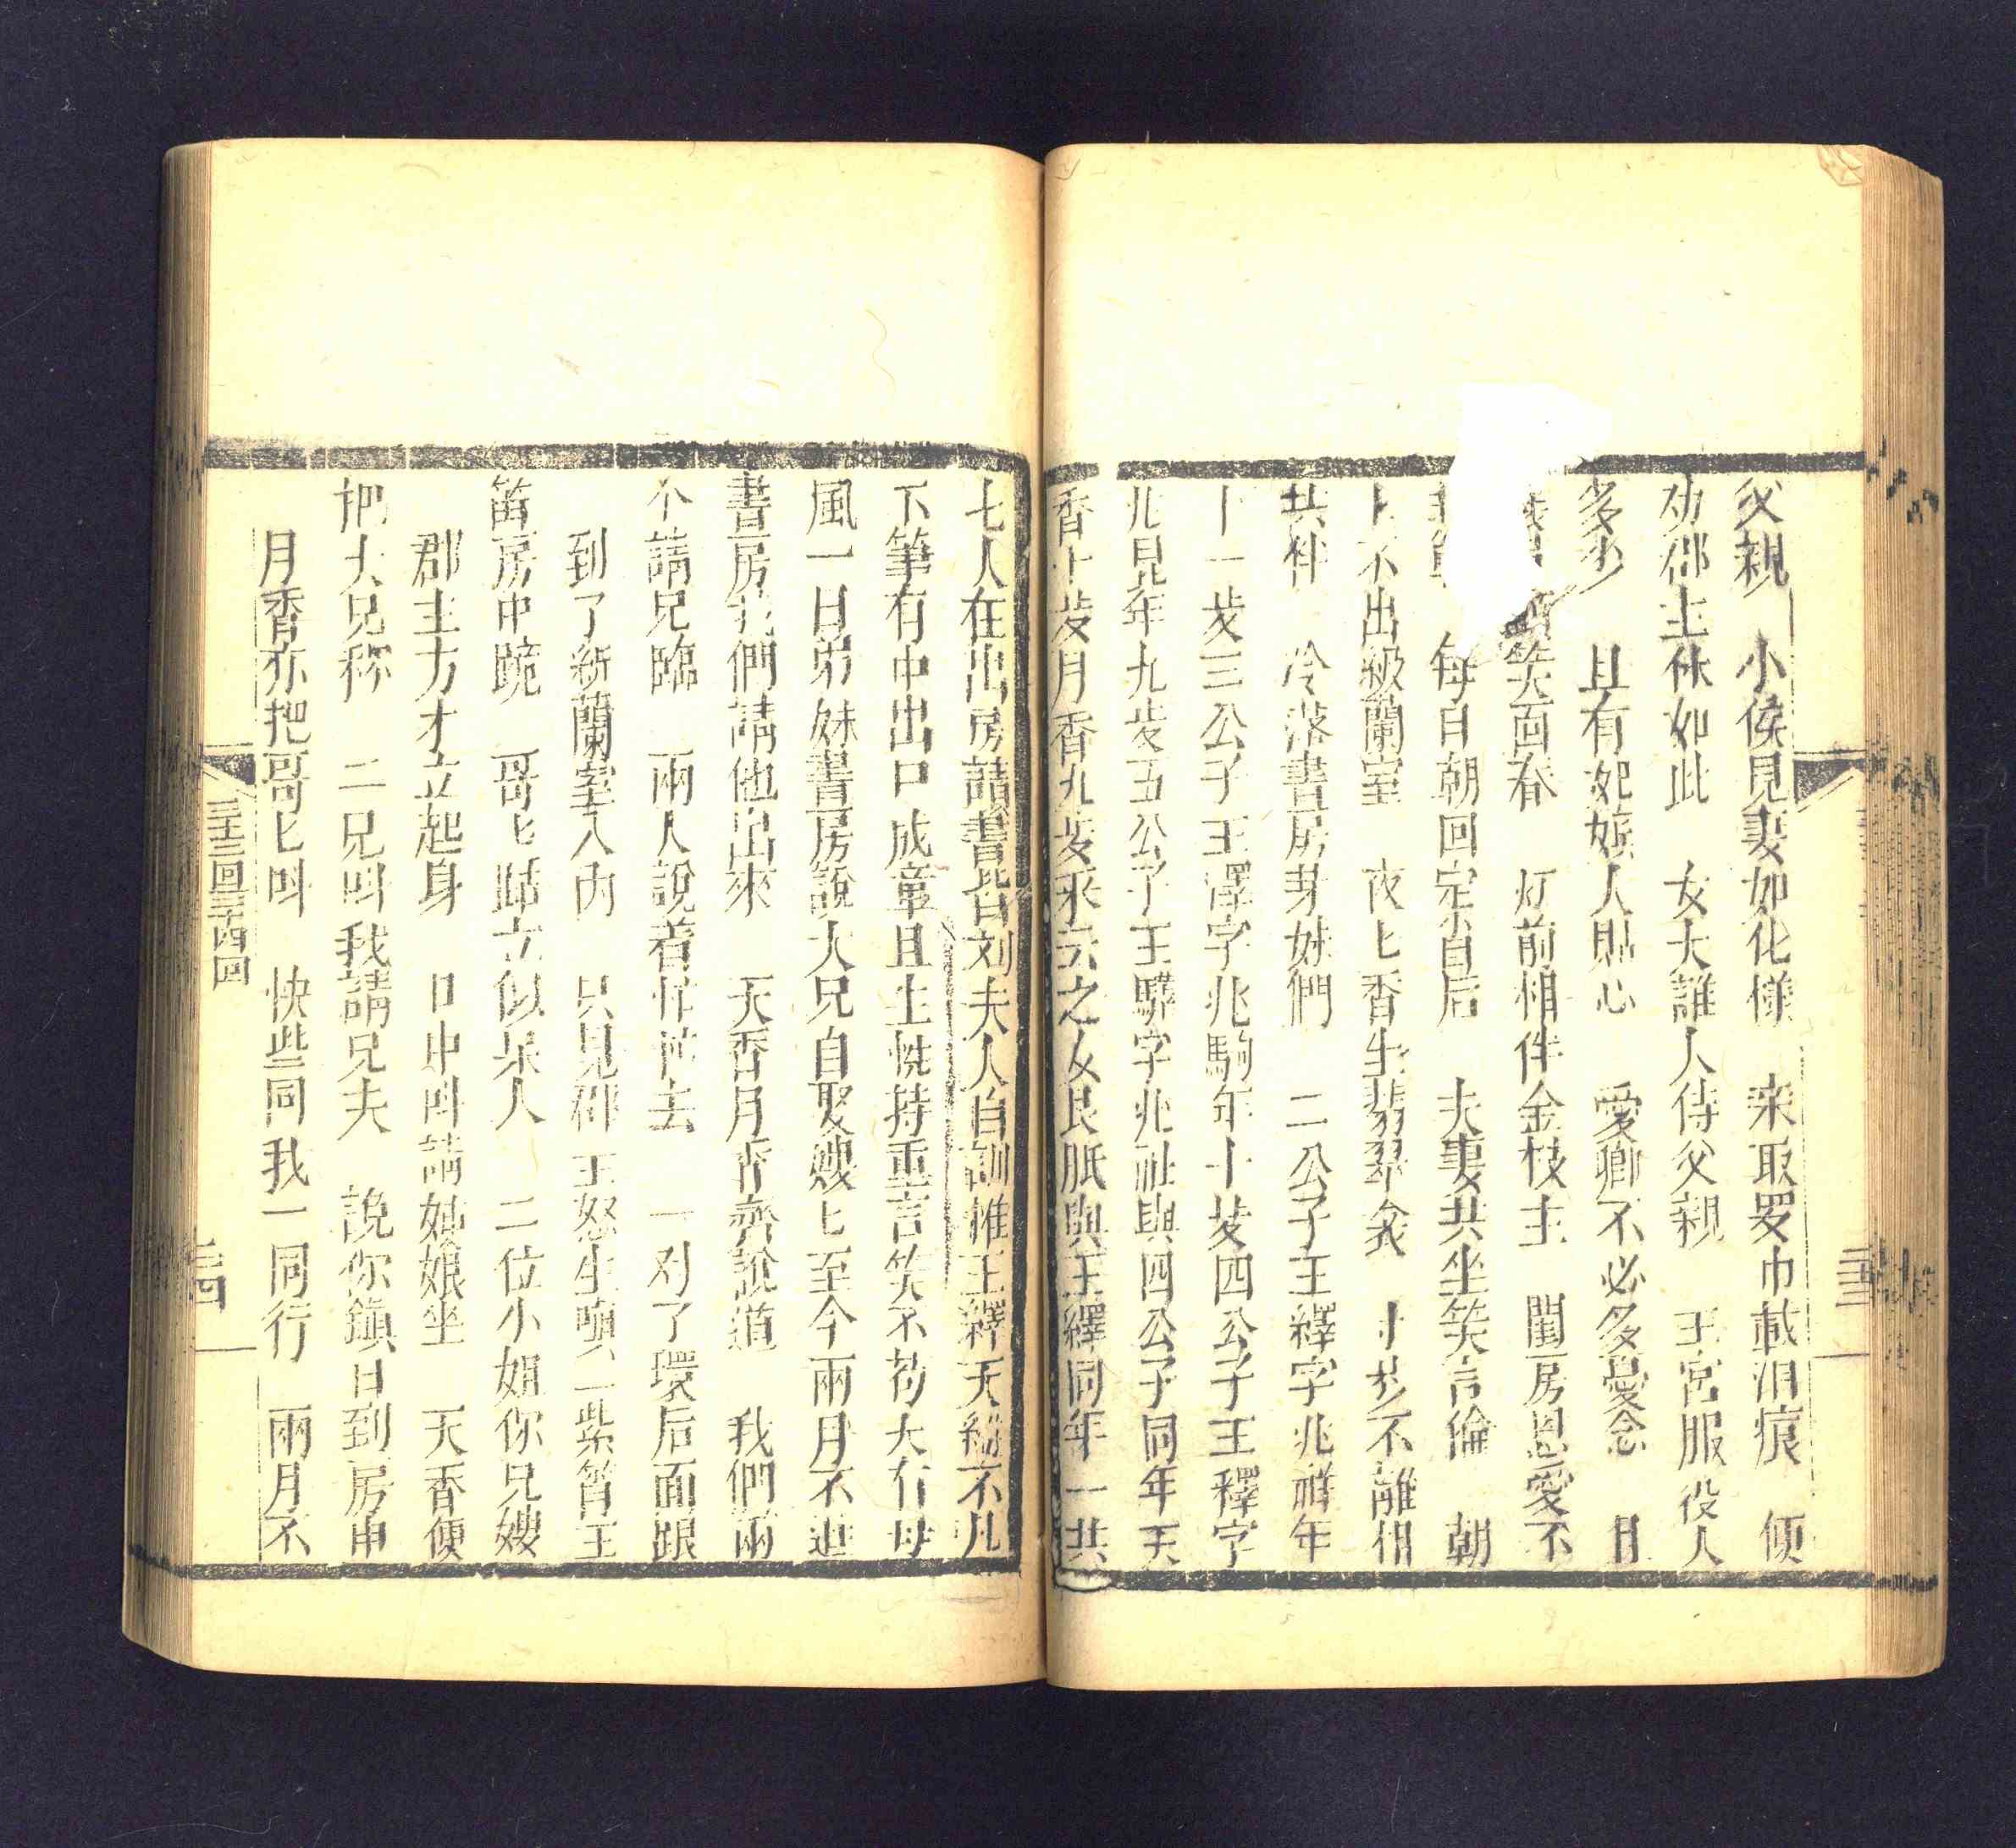 父親　小侯見妻如化樣　亲取罗巾載泪痕　便
劝郡主休如此　女大誰人侍父親　王宮服役人
多少　且有妃嬪人貼心　愛卿不必多憂念　且
笑面春　灯前相伴金枝主　閨房恩愛不
每日朝回定省后　夫妻共坐笑言倫　朝
不出級蘭室　夜匕香生翡翠衾　寸步不離相
共伴　冷落書房弟妹們　二公子王繹字兆祥年
十一岁三公子王澤字兆駒年十岁四公子王釋字
兆見年九岁五公子王驛字兆祉與四公子同年天
香十岁月香九岁乘云之女艮胝與王繹同年一共
七人在出房讀書皆刘夫人自訓惟王繹天香不凡
下筆有中出口成章且生性持重言笑不苟大有母
風一日弟妹書房說大兄自娶嫂匕至今兩月不進
書房我們請他出來　天香月香齊說道　我們兩
不請兄臨　兩人說着忙前去　一对了環后面跟
到了新蘭室入内　只見郡王怒生嗔　紫筲王
笛房中跪　哥匕跕立似呆人　二位小姐你兄嫂
郡主方才立起身　口中叫請姑娘坐　天香便
把大兄称　二兄叫我請兄夫　說你鎮日到房中
月香亦把哥匕叫　快些同我一同行　兩月不
三十三回三十四回